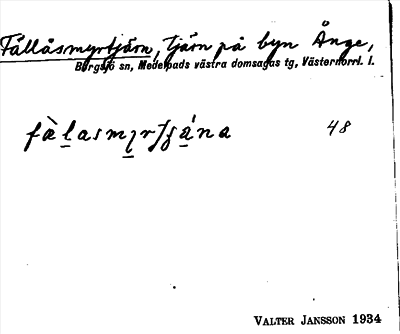 Fållåsmyrtjärn, tjärn på byn Ånge,
Borgsjö sn, Medelpads västra domsagas tg, Västernorrl. l.
48
VALTER JANSSON 1934